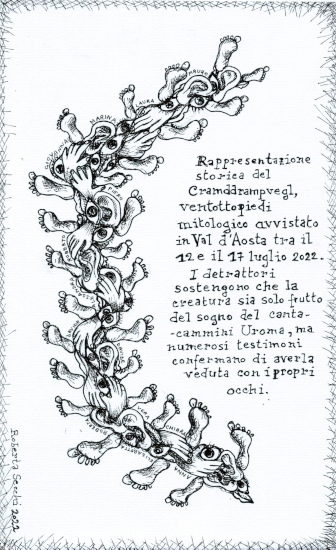 MAURO
AURA
MARINA
Rappresentazione
storica del
Cramdàrampvegl,
ventottopiedi
mitologico avvistato
in Val d'Aosta tra il
12 e il 17 luglio 2022.
I detrattori
sostengono che la
creatura sia solo frutto
del sogno del canta-
-cammini Uroma, ma
numerosi testimoni
confermano di averla
veduta con i propri
occhi.
CHIARA
Roberta Secchi 2022